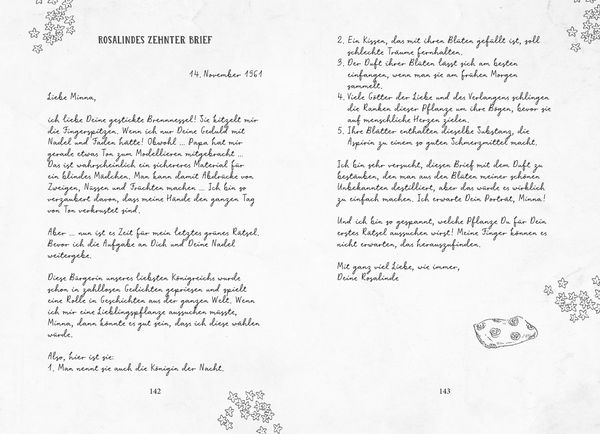 ROSALINDES ZEHNTER BRIEF
14. November 1961
Liebe Minna,
ich liebe Deine gestickte Brennnessel! Sie kitzelt mir
die Fingerspitzen. Wenn ich nur Deine Geduld mit
Nadel und Faden hätte! Obwohl ... Papa hat mir
gerade etwas Ton zum Modellieren mitgebracht ...
Das ist wahrscheinlich ein sichereres Material für
ein blindes Mädchen. Man kann damit Abdrücke von
Zweigen, Nüssen und Früchten machen ... Ich bin so
verzaubert davon, dass meine Hände den ganzen Tag
von Ton verkrustet sind.
Aber ... nun ist es Zeit für mein letztes grünes Rätsel.
Bevor ich die Aufgabe an Dich und Deine Nadel
weitergebe.
Diese Bürgerin unseres liebsten Königreichs wurde
schon in zahllosen Gedichten gepriesen und spielt
eine Rolle in Geschichten aus der ganzen Welt. Wenn
ich mir eine Lieblingspflanze aussuchen müsste,
Minna, dann könnte es gut sein, dass ich diese wählen
würde.
Also, hier ist sie:
1. Man nennt sie auch die Königin der Nacht.
142
2. Ein Kissen, das mit ihren Blüten gefüllt ist, soll
schlechte Träume fernhalten.
3. Der Duft ihrer Blüten lässt sich am besten
einfangen, wenn man sie am frühen Morgen
sammelt.
4. Viele Götter der Liebe und des Verlangens schlingen
die Ranken dieser Pflanze um ihre Bögen, bevor sie
auf menschliche Herzen zielen.
5. Ihre Blätter enthalten dieselbe Substanz, die
Aspirin zu einem so guten Schmerzmittel macht.
Ich bin sehr versucht, diesen Brief mit dem Duft zu
bestäuben, den man aus den Blüten meiner schönen
Unbekannten destilliert, aber das würde es wirklich
zu einfach machen. Ich erwarte Dein Porträt, Minna!
Und ich bin so gespannt, welche Pflanze Du für Dein
erstes Rätsel aussuchen wirst! Meine Finger können es
nicht erwarten, das herauszufinden.
Mit ganz viel Liebe, wie immer,
Deine Rosalinde
143